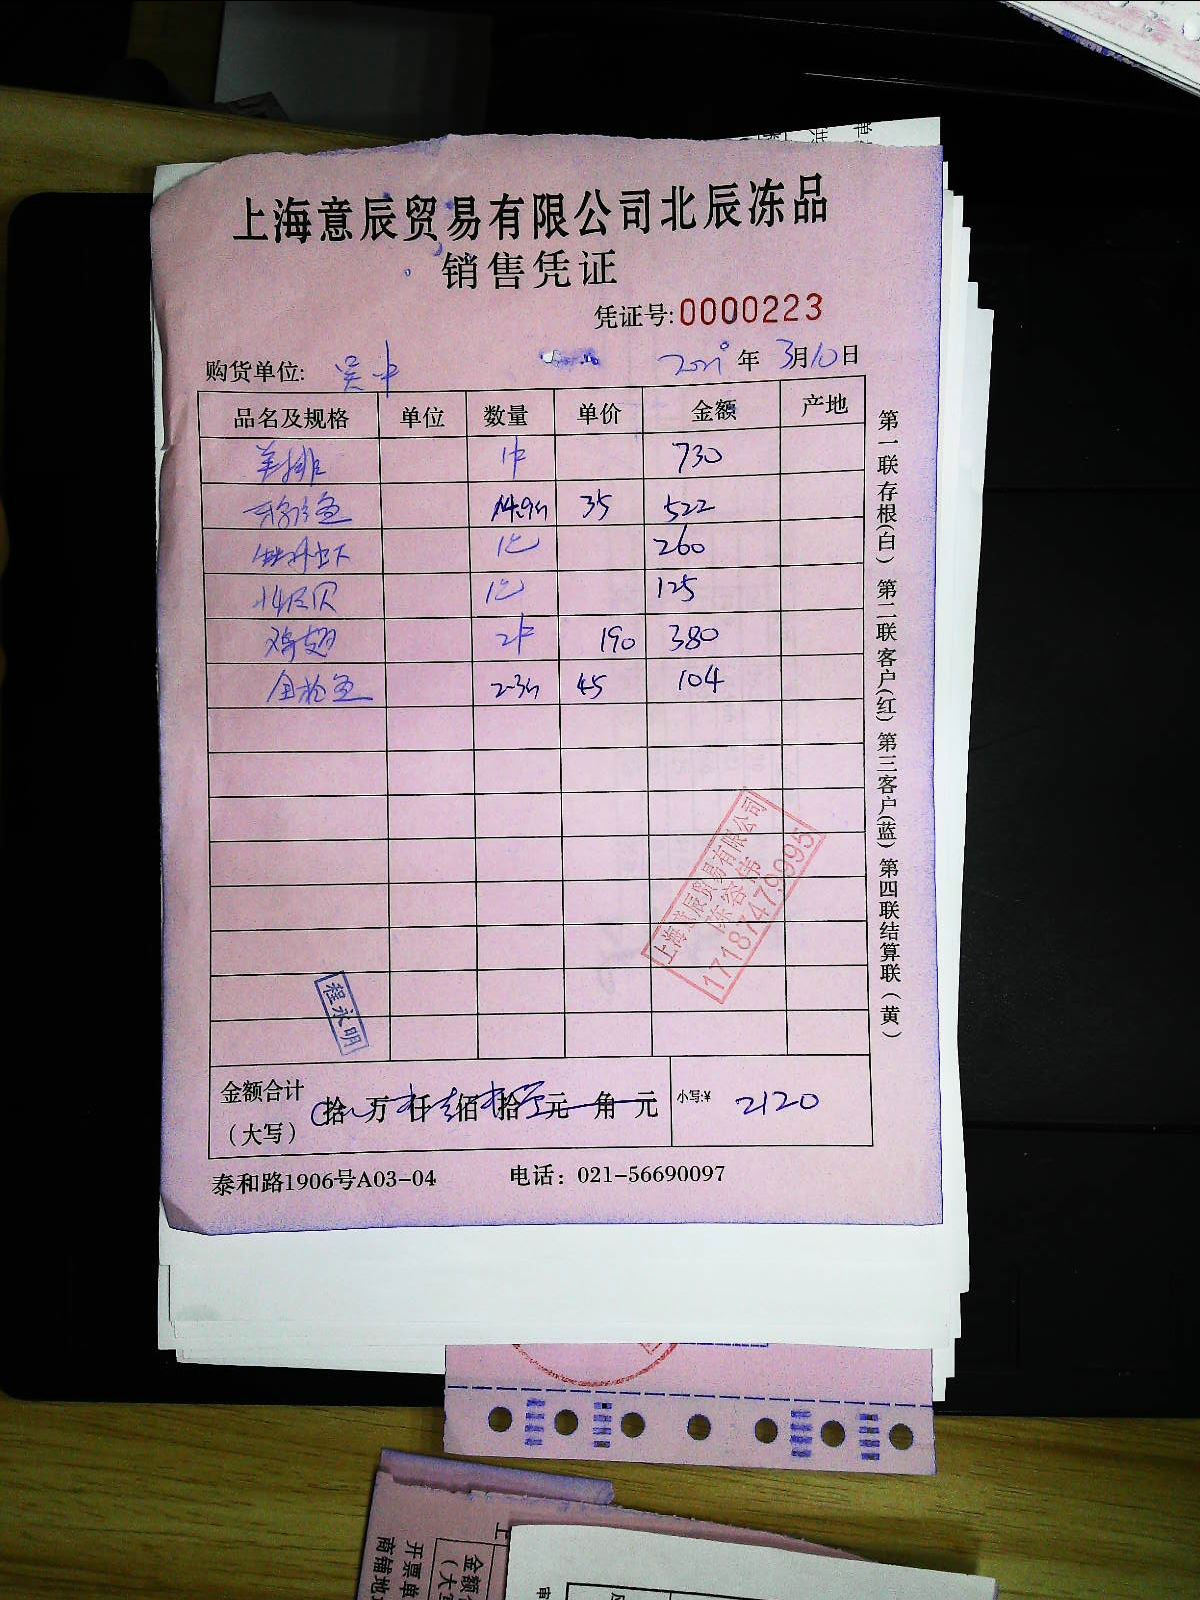 上海意辰贸易有限公司北辰冻品
销售凭证
凭证号:0000223
购货单位: 吴中 年 3月10日
品名及规格 单位 数量 单价 金额 产地
羊排 1件 730
14.9斤 35 522
1包 260
1包 125
鸡翅 2件 190 380
金枪鱼 2.3斤 45 104
上海意辰贸易有限公司
17187479995
程永明
金额合计
(大写) 拾 万 仟 佰 拾 元 角 元 小写:¥ 2120
泰和路1906号A03-04 电话: 021-56690097
第一联存根(白) 第二联客户(红) 第三客户(蓝) 第四联结算联(黄)
金额
(大
开票单
商铺地